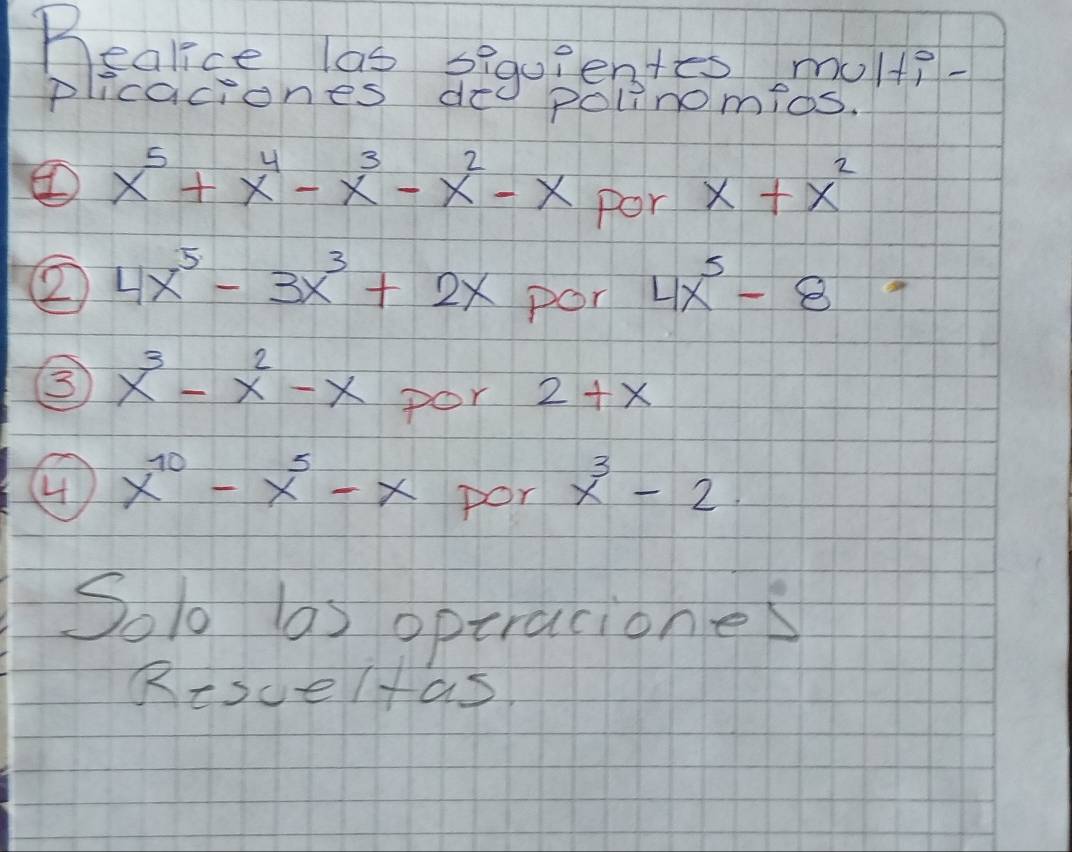 Realice las siguientes multi-
plicaciones de polinomios.
① x⁵ + x⁴ - x³ - x² - x por x + x²
② 4x⁵ - 3x³ + 2x por 4x⁵ - 8
③ x³ - x² - x por 2 + x
④ x¹⁰ - x⁵ - x por x³ - 2.
Solo las operaciones
Resueltas.